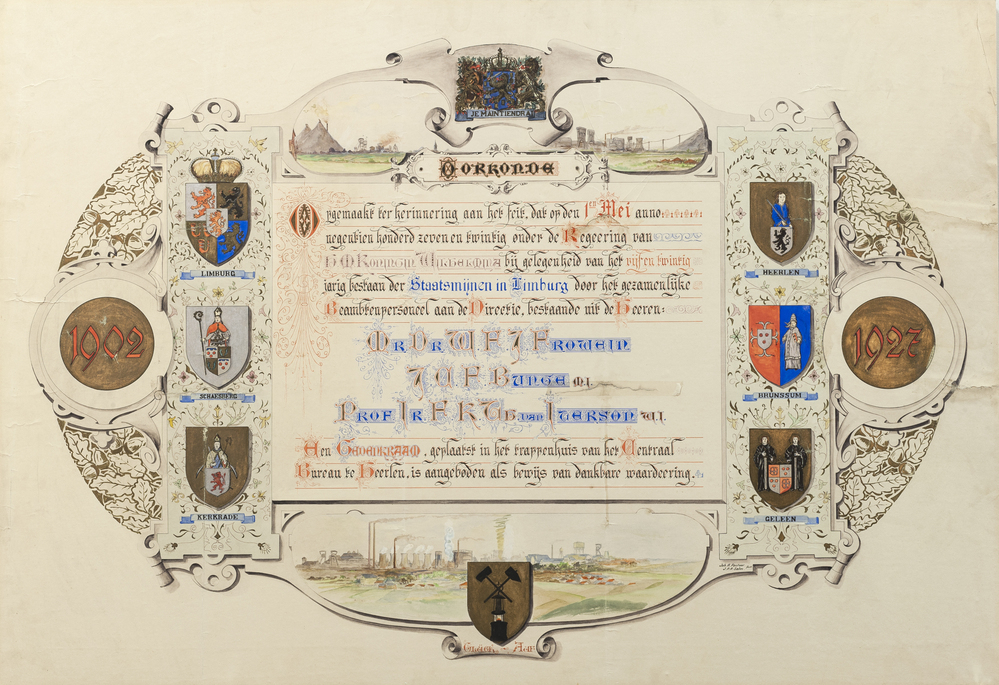 JE MAINTIENDRAI
OORKONDE
Opgemaakt ter herinnering aan het feit, dat op den 1en Mei anno
negentien honderd zeven en twintig onder de Regeering van
H M Koningin Wilhelmina bij gelegenheid van het vijf en twintig
jarig bestaan der Staatsmijnen in Limburg door het gezamenlijke
Beambtenpersoneel aan de Directie, bestaande uit de Heeren:
Mr Dr W F J Frowein
J U F Bunge M.I.
Prof Ir F K Th. van Iterson W.I.
Een Gedenkraam, geplaatst in het trappenhuis van het Centraal
Bureau te Heerlen, is aangeboden als bewijs van dankbare waardeering.
LIMBURG
SCHAESBERG
KERKRADE
1902
HEERLEN
BRUNSSUM
GELEEN
1927
Glück Auf